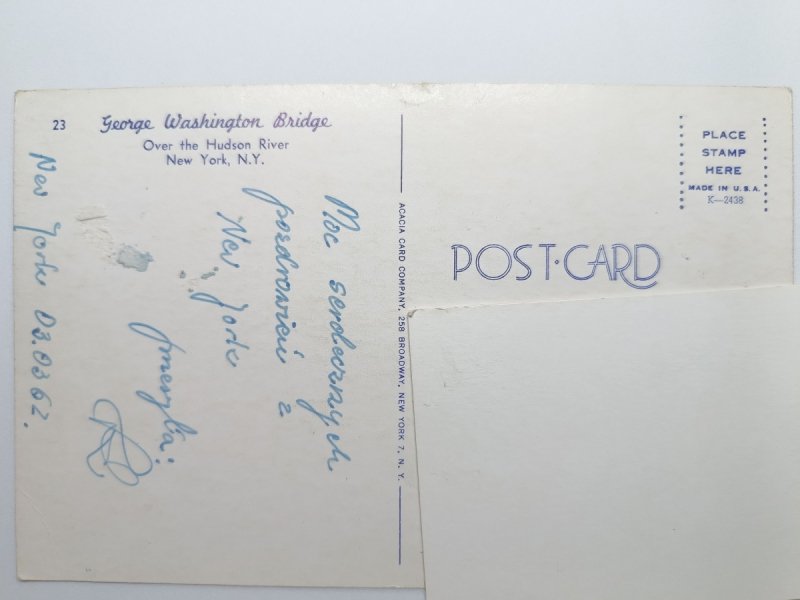 23
George Washington Bridge
Over the Hudson River
New York, N.Y.
Moc serdecznych
pozdrowień z
New Yorku
przesyła:
New York 03.03 62.
ACACIA CARD COMPANY, 258 BROADWAY, NEW YORK 7, N. Y.
PLACE
STAMP
HERE
MADE IN U.S.A.
K—2438
POST·CARD